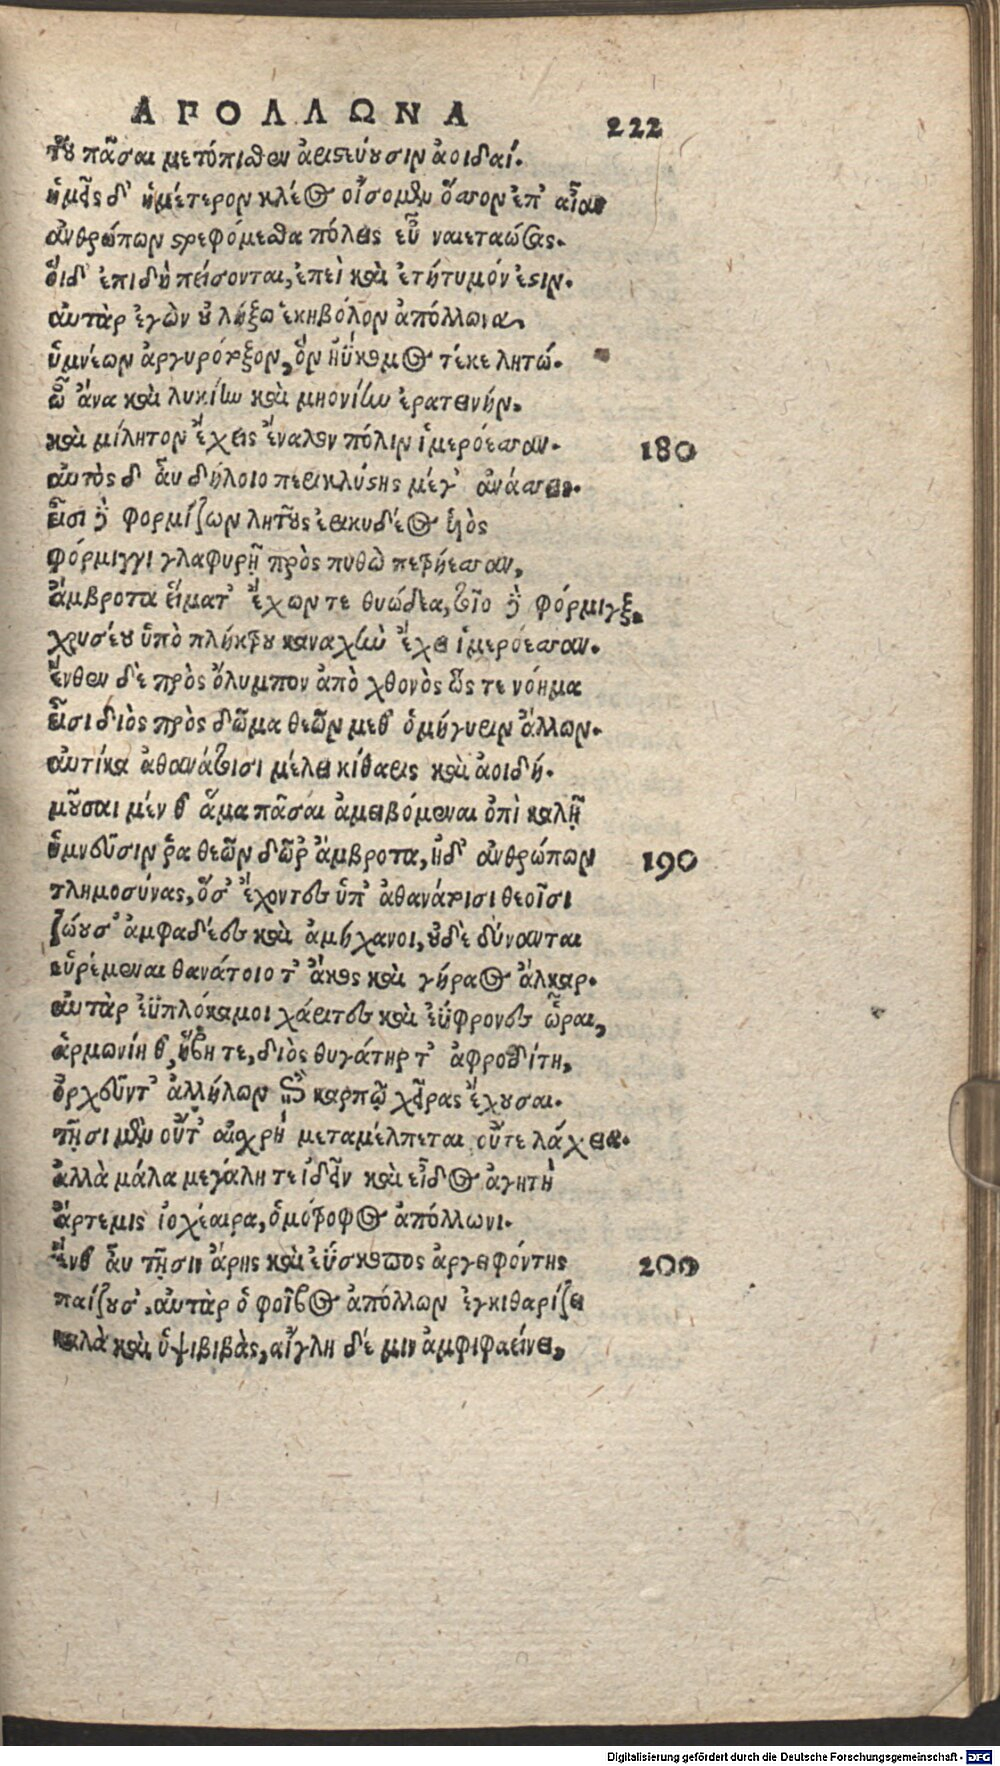 ΑΠΟΛΛΩΝΑ 222
τοῦ πᾶσαι μετόπιθεν ἀριστεύουσιν ἀοιδαί.
ἡμεῖς δ' ἡμέτερον κλέος οἴσομεν ὅσσον ἐπ' αἶαν
ἀνθρώπων στρεφόμεθα πόλεις εὖ ναιεταώσας.
οἵδ' ἐπιδὴ πείσονται, ἐπεὶ καὶ ἐτήτυμόν ἐστιν.
αὐτὰρ ἐγὼν οὐ λήξω ἑκηβόλον ἀπόλλωνα,
ὑμνέων ἀργυρότοξον, ὃν ἠΰκομος τέκε λητώ.
ὦ ἄνα καὶ λυκίην καὶ μηονίην ἐρατεινήν,
καὶ μίλητον ἔχεις ἔναλον πόλιν ἱμερόεσσαν. 180
αὐτὸς δ' ἂν δήλοιο περικλύστης μέγ' ἀνάσσεις.
εἶσι δὲ φορμίζων λητοῦς ἐρικυδέος υἱὸς
φόρμιγγι γλαφυρῇ πρὸς πυθὼ πετρήεσσαν,
ἄμβροτα εἵματ' ἔχων τε θυώδεα, τοῖο δὲ φόρμιγξ
χρυσέου ὑπὸ πλήκτρου καναχὴν ἔχει ἱμερόεσσαν.
ἔνθεν δὲ πρὸς ὄλυμπον ἀπὸ χθονὸς ὥς τε νόημα
εἶσι διὸς πρὸς δῶμα θεῶν μεθ' ὁμήγυριν ἄλλων.
αὐτίκα ἀθανάτοισι μέλει κίθαρις καὶ ἀοιδή.
μοῦσαι μέν θ' ἅμα πᾶσαι ἀμειβόμεναι ὀπὶ καλῇ
ὑμνεῦσιν ῥα θεῶν δῶρ' ἄμβροτα, ἠδ' ἀνθρώπων 190
τλημοσύνας, ὅσ' ἔχοντες ὑπ' ἀθανάτοισι θεοῖσι
ζώουσ' ἀμφαδέες καὶ ἀμήχανοι, οὐδὲ δύνανται
εὑρέμεναι θανάτοιο τ' ἄκος καὶ γήραος ἄλκαρ.
αὐτὰρ ἐϋπλόκαμοι χάριτες καὶ ἐΰφρονες ὧραι,
ἁρμονίη θ', ἥβη τε, διὸς θυγάτηρ τ' ἀφροδίτη,
ὀρχεῦντ' ἀλλήλων ἐπὶ καρπῷ χεῖρας ἔχουσαι.
τῇσι μὲν οὔτ' αἰσχρὴ μεταμέλπεται οὔτε λάχεια.
ἀλλὰ μάλα μεγάλη τε ἰδεῖν καὶ εἶδος ἀγητὴ
ἄρτεμις ἰοχέαιρα, ὁμότροφος ἀπόλλωνι.
ἔνθ' ἂν τῇσιν ἄρης καὶ ἐΰσκοπος ἀργειφόντης 200
παίζουσ'. αὐτὰρ ὁ φοῖβος ἀπόλλων ἐγκιθαρίζει
καλὰ καὶ ὑψιβιβὰς, αἴγλη δέ μιν ἀμφιφαείνει,
Digitalisierung gefördert durch die Deutsche Forschungsgemeinschaft - DFG